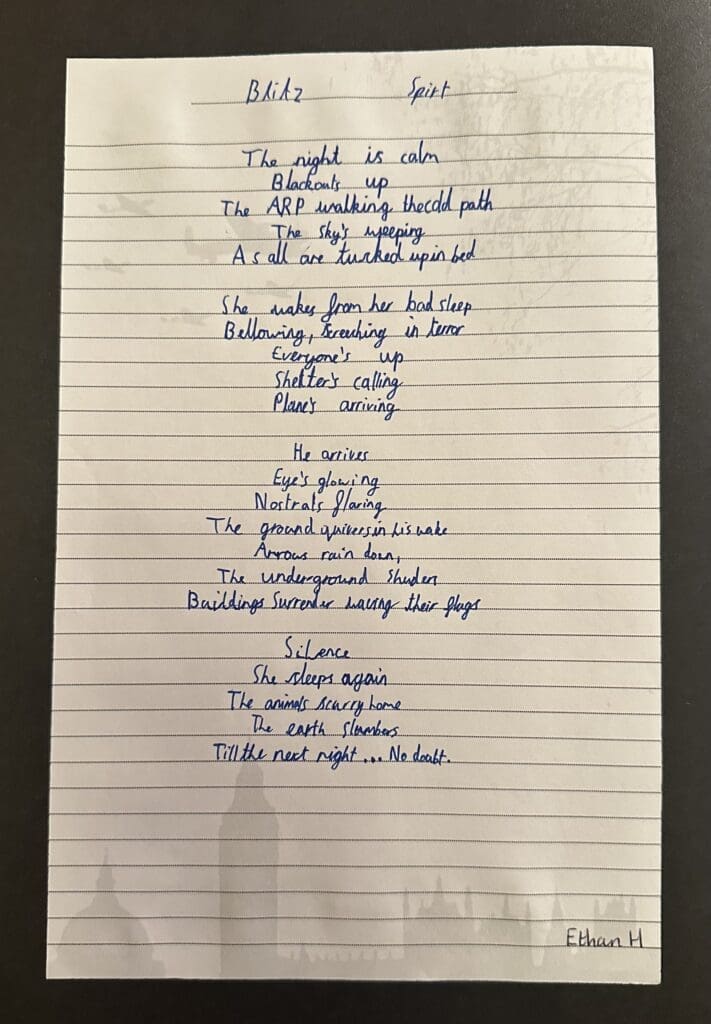 Blitz Spirt
The night is calm
Blackouts up
The ARP walking the cold path
The sky's weeping
As all are tucked up in bed
She wakes from her bad sleep
Bellowing, screeching in terror
Everyone's up
Shelter's calling
Plane's arriving
He arrives
Eye's glowing
Nostrals flaring
The ground quivers in his wake
Arrows rain down,
The underground shuders
Buildings surrender waving their flags
Silence
She sleeps again
The animals scurry home
The earth slumbers
Till the next night ... No doubt.
Ethan H